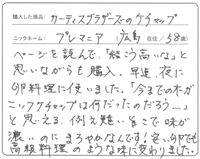 購入した商品： カーティスブラザーズのケチャップ
ニックネーム： プレマニア （ 広島 在住 / 58歳）
ページを読んで、「結構高いな」と
思いながらも購入。早速、夜に
卵料理に使いました。「今までのオーガ
ニックケチャップは何だったのだろう…」
と思えます。例え難いまでで味が
濃いのに まろやかなんです！安い卵でも
高級料理のような味に変わりました。